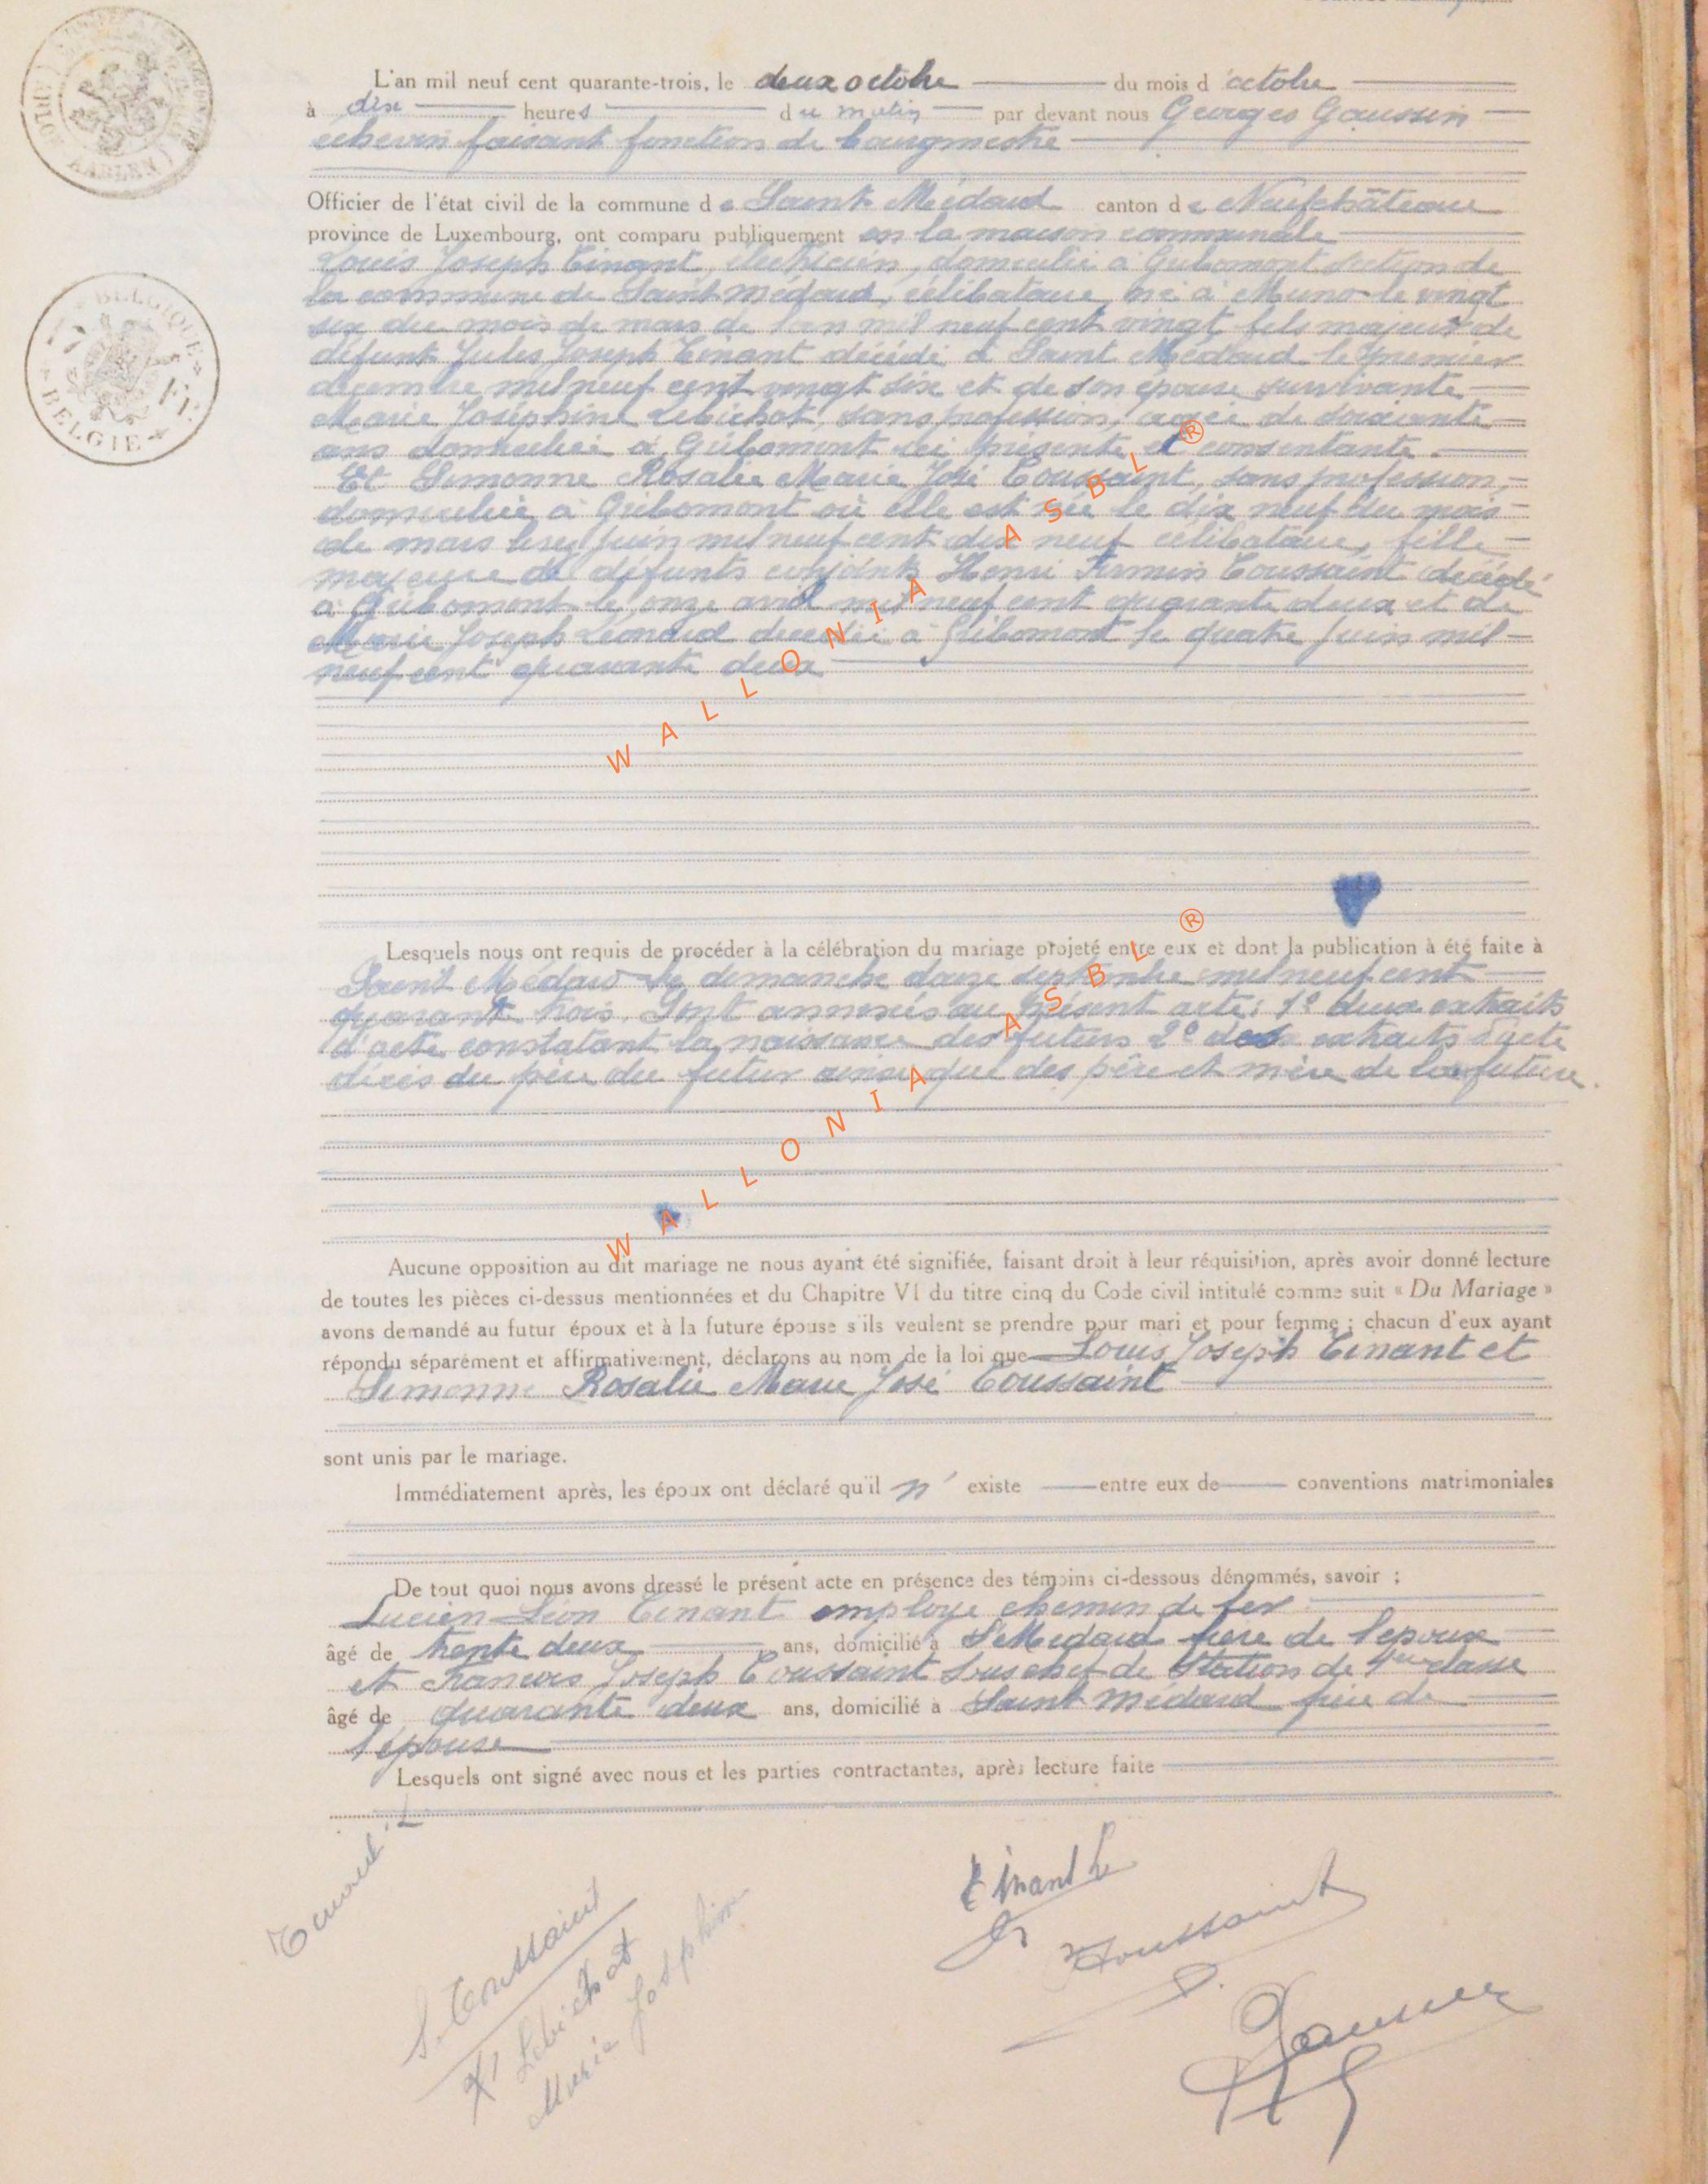 L'an mil neuf cent quarante-trois, le deux octobre du mois d'octobre
à dix heures du matin par devant nous Georges Gaussin
echevin faisant fonction de bourgmestre
Officier de l'état civil de la commune de Saint Médard canton de Neufchâteau
province de Luxembourg, ont comparu publiquement en la maison communale
Louis Joseph Tinant, électricien, domicilié à Gribomont section de
la commune de Saint Médard, célibataire, né à Muno le vingt
six du mois de mars de l'an mil neuf cent vingt fils majeur de
défunt Jules Joseph Tinant décédé à Saint Médard le premier
décembre mil neuf cent vingt six et de son épouse survivante
Marie Joséphine Lebichot, sans profession, agée de soixante
ans domiciliée à Gribomont ici présente et consentante.
Et Simonne Rosalie Marie José Toussaint, sans profession,
domiciliée à Gribomont où elle est née le dix neuf du mois
de mars lisez juin mil neuf cent dix neuf célibataire, fille
majeure de défunts conjoints Henri Firmin Toussaint décédé
à Gribomont le onze avril mil neuf cent quarante deux et de
Marie Joseph Léonard décédée à Gribomont le quatre juin mil
neuf cent quarante deux
Lesquels nous ont requis de procéder à la célébration du mariage projeté entre eux et dont la publication à été faite à
Saint Médard le dimanche douze septembre mil neuf cent
quarante trois. Sont annexés au présent acte: 1° deux extraits
d'acte constatant la naissance des futurs 2° des extraits d'acte
décès du père du futur ainsi que des père et mère de la future.
Aucune opposition au dit mariage ne nous ayant été signifiée, faisant droit à leur réquisition, après avoir donné lecture
de toutes les pièces ci-dessus mentionnées et du Chapitre VI du titre cinq du Code civil intitulé comme suit « Du Mariage »
avons demandé au futur époux et à la future épouse s'ils veulent se prendre pour mari et pour femme ; chacun d'eux ayant
répondu séparément et affirmativement, déclarons au nom de la loi que Louis Joseph Tinant et
Simonne Rosalie Marie José Toussaint
sont unis par le mariage.
Immédiatement après, les époux ont déclaré qu'il n' existe entre eux de conventions matrimoniales
De tout quoi nous avons dressé le présent acte en présence des témoins ci-dessous dénommés, savoir :
Lucien Léon Tinant employé chemin de fer
âgé de trente deux ans, domicilié à St Medard frère de l'epoux
et Francois Joseph Toussaint sous chef de Station de 1ere classe
âgé de quarante deux ans, domicilié à Saint Médard frère de
l'épouse
Lesquels ont signé avec nous et les parties contractantes, après lecture faite
Tinant L
S. Toussaint
Lebichot
Marie Joséphine
Tinant L
Toussaint
Gaussin
BELGIQUE
BELGIE
WALLONIA ASBL ®
WALLONIA ASBL ®